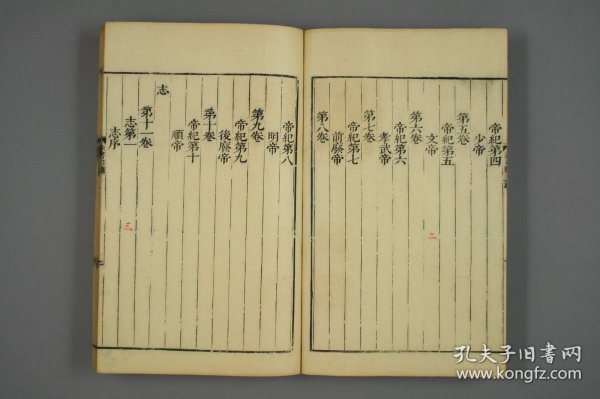 帝紀第四
少帝
第五卷
帝紀第五
文帝
第六卷
帝紀第六
孝武帝
第七卷
帝紀第七
前廢帝
第八卷
二
帝紀第八
明帝
第九卷
帝紀第九
後廢帝
第十卷
帝紀第十
順帝
志
第十一卷
志第一
志序
三
孔夫子旧书网
www.kongfz.com